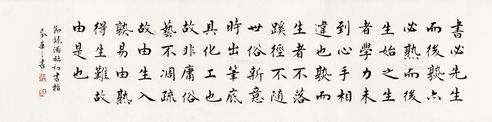 書必先生
而後熟亦
必熟而後
生始之生
者學力未
到心手相
違也熟而
生者不落
蹊徑不隨
世俗新意
時出筆底
具化工也
故非庸俗
藝不凋疏
故由生入
熟易由熟
得生難故
由是也
節錄湯臨初書指